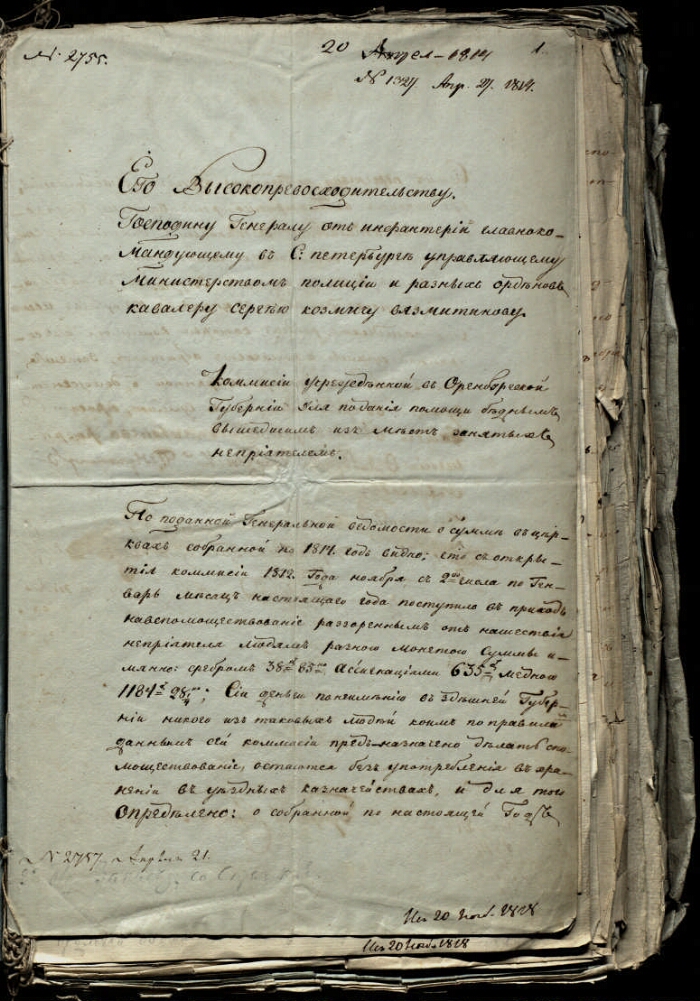 № 2755.
20 Апрел - 1814 1.
№ 1327 Апр. 27. 1814.
Его Высокопревосходительству.
Господину Генералу отъ инфантеріи главноко-
мандующему въ С: петербургѣ управляющему
Министерствомъ полиціи и разныхъ ордѣновъ
кавалеру сергѣю козмичу вязмитинову.
Коммисіи учрежденной въ Оренбургской
Губерніи для поданія помощи бѣднымъ
вышедшимъ изъ мѣстъ занятыхъ
непріятелемъ.
По поданной Генеральной ведомости о суммѣ въ цер-
квахъ собранной по 1814. годъ видно; что съ откры-
тія коммисіи 1812. Года ноября съ 2го числа по Ген-
варь мѣсяцъ настоящаго года поступило въ приходъ
навспомоществованіе раззореннымъ отъ нашествія
непріятеля людямъ разного монетою суммы и-
мянно: сребромъ 38 р 85 ассигнаціями 635 р мѣдною
1184 р 28; Сіи деньги по неимѣнію въ здѣшней Губер-
ніи никого изъ таковыхъ людѣй коимъ по правила
даннымъ сей коммисіи предъназначено дѣлать спо-
моществованіе, остаются безъ употребленія въ хра-
неніи въ уѣздныхъ казначействахъ, и для того
Опредѣлено: о собранной по настоящей Годъ
№ 2757. Апреля 21.
Из 20 Нояб. 1818
Из 20 Нояб. 1818